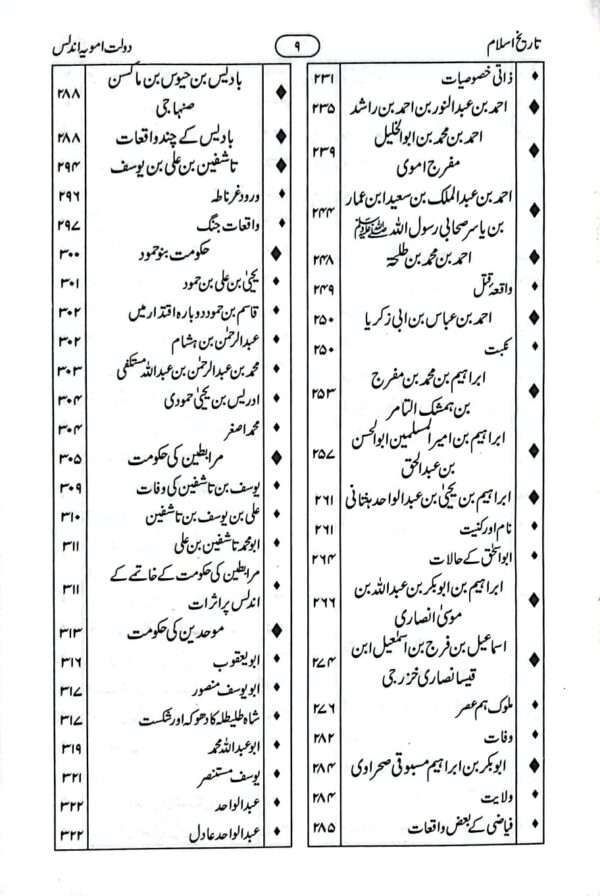 تاریخ اسلام
۹
دولت امویہ اندلس
ذاتی خصوصیات ۲۳۱
احمد بن عبدالنور بن احمد بن راشد ۲۳۵
احمد بن محمد بن ابوالخلیل
مفرج اموی ۲۳۹
احمد بن عبدالملک بن سعید ابن عمار
بن یاسر صحابی رسول اللہ ﷺ ۲۴۴
احمد بن محمد بن طلحۃ ۲۴۸
واقعۂ قتل ۲۴۹
احمد بن عباس بن ابی زکریا ۲۵۰
نکبت ۲۵۰
ابراہیم بن محمد بن مفرج
بن ہمشک التامر ۲۵۳
ابراہیم بن امیر المسلمین ابوالحسن
بن عبدالحق ۲۵۷
ابراہیم بن یحییٰ بن عبدالواحد ہنتانی ۲۶۱
نام اور کنیت ۲۶۱
ابو اسحٰق کے حالات ۲۶۴
ابراہیم بن ابوبکر بن عبداللہ بن
موسیٰ انصاری ۲۶۶
اسماعیل بن فرج بن اسمٰعیل ابن
قیسا نصاری خزرجی ۲۷۴
ملوک ہم عصر ۲۷۶
وفات ۲۸۲
ابوبکر بن ابراہیم مسبوقی صحراوی ۲۸۴
ولایت ۲۸۴
فیاضی کے بعض واقعات ۲۸۵
بادیس بن حیوس بن ماکسن
صنہاجی ۲۸۸
بادیس کے چند واقعات ۲۸۸
تاشفین بن علی بن یوسف ۲۹۴
ورود غرناطہ ۲۹۶
واقعات جنگ ۲۹۷
حکومت بنو حمود ۳۰۰
یحییٰ بن علی بن حمود ۳۰۱
قاسم بن حمود دوبارہ اقتدار میں ۳۰۲
عبدالرحمٰن بن ہشام ۳۰۲
محمد بن عبدالرحمٰن بن عبداللہ مستکفی ۳۰۳
ادریس بن یحییٰ حمودی ۳۰۴
محمد اصغر ۳۰۴
مرابطین کی حکومت ۳۰۵
یوسف بن تاشفین کی وفات ۳۰۹
علی بن یوسف بن تاشفین ۳۱۰
ابو محمد تاشفین بن علی ۳۱۱
مرابطین کی حکومت کے خاتمے کے
اندلس پر اثرات ۳۱۱
موحدین کی حکومت ۳۱۳
ابو یعقوب ۳۱۶
ابو یوسف منصور ۳۱۷
شاہ طلیطلہ کا دھوکہ اور شکست ۳۱۷
ابو عبداللہ محمد ۳۱۹
یوسف مستنصر ۳۲۱
عبدالواحد ۳۲۲
عبدالواحد عادل ۳۲۲